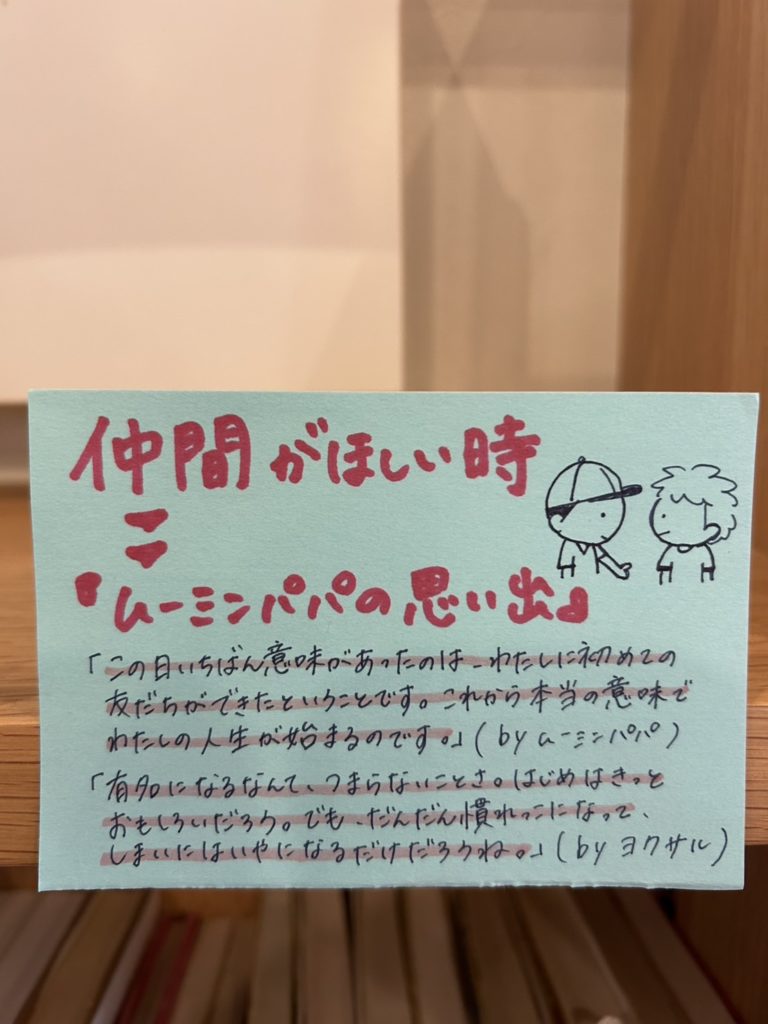 仲間がほしい時
『ムーミンパパの思い出』
「この日いちばん意味があったのは、わたしに初めての
友だちができたということです。これから本当の意味で
わたしの人生が始まるのです。」(byムーミンパパ)
「有名になるなんて、つまらないことさ。はじめはきっと
おもしろいだろう。でも、だんだん慣れっこになって、
しまいにはいやになるだけだろうね。」(byヨクサル)